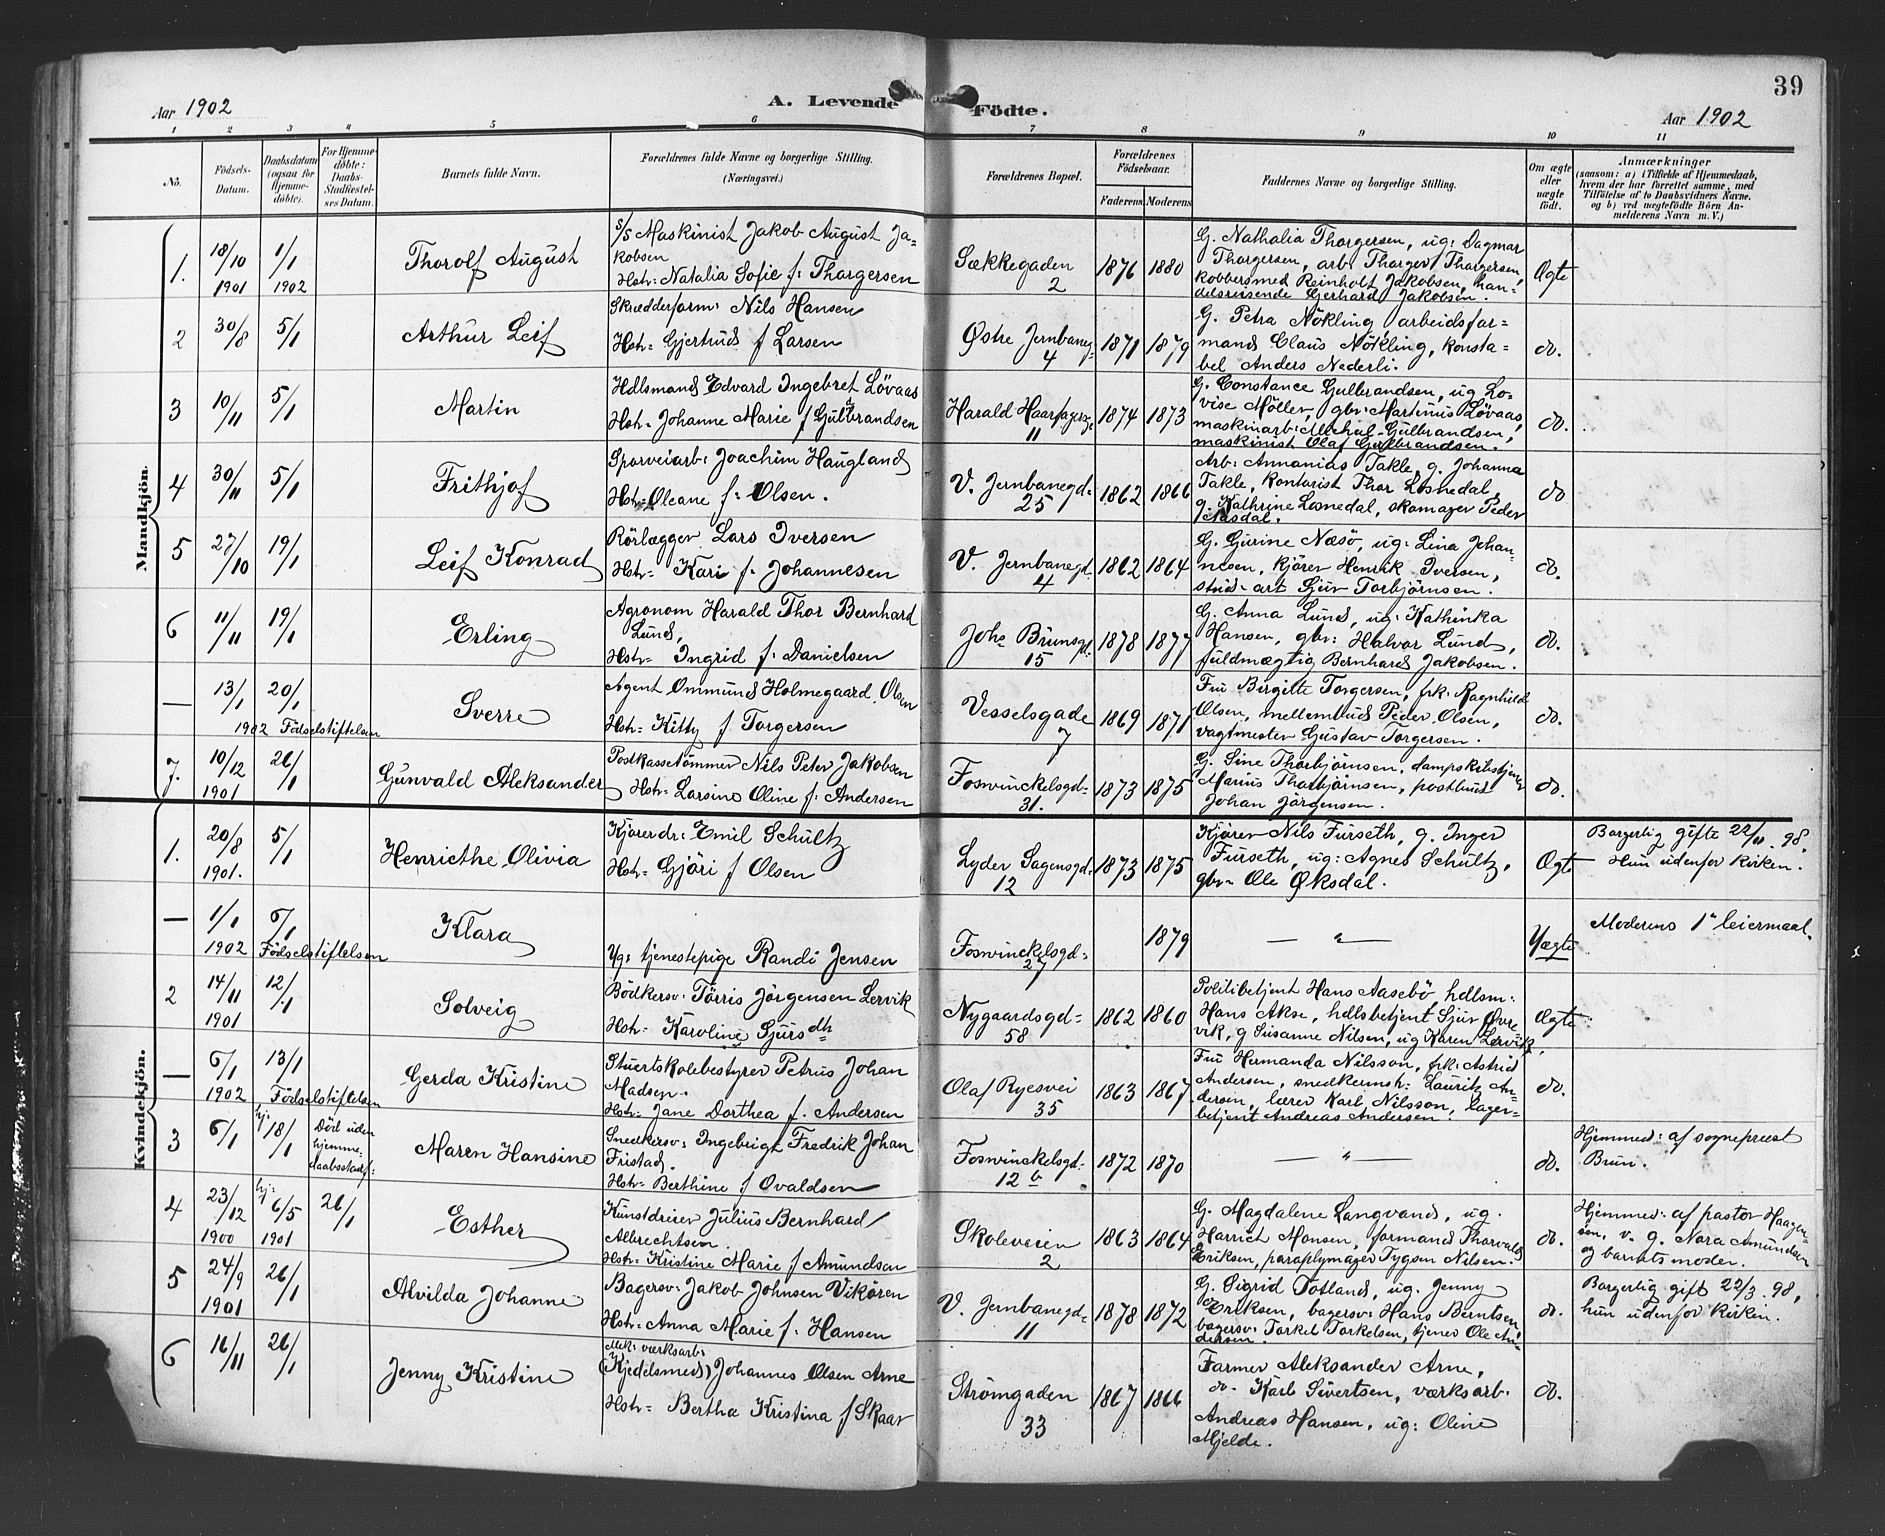 39
Aar 1902
A. Levende Födte.
Aar 1902
1 2 3 4 5 6 7 8 9 10 11
No.
Födsels-Datum.
Daabsdatum (ogsaa for Hjemmedöbte).
For Hjemmedöbte: Daabs-Stadfæstelses Datum.
Barnets fulde Navn.
Forældrenes fulde Navne og borgerlige Stilling.
(Næringsvei.)
Forældrenes Bopæl.
Forældrenes Födselsaar.
Faderens Moderens
Faddernes Navne og borgerlige Stilling.
Om ægte eller uægte födt.
Anmærkninger
(saasom: a) i Tilfælde af Hjemmedaab, hvem der har forrettet samme, med Tilföielse af to Daabsvidners Navne, og b) ved uægtefödte Börn Anmelderens Navn m. V.)
Mandkjön.
1. 18/10 1901 1/1 1902 Thorolf August
S/S Maskinist Jakob August Jakobsen
Hstr: Natalia Sofie f: Thorgersen
Sækkegaden 2
1876 1880
G. Nathalia Thorgersen, ug: Dagmar
Thorgersen, arb: Thorger Thorgersen,
kobbersmed Reinholt Jakobsen, han-
delsreisende Gerhard Jakobsen.
Ægte
2 30/8 5/1 Arthur Leif
Skrædderform: Nils Hansen
Hstr: Gjertrud f Larsen
Østre Jernbaneg: 4
1871 1879
G. Petra Nökling, arbeidsfor=
mand Claus Nökling, konsta=
bel Anders Nederli.
do.
3 10/11 5/1 Martin
Hdlsmand Edvard Ingebret Lövaas
Hstr: Johanne Marie f Gulbrandsen
Harald Haarfagersg: 11
1874 1873
G. Constance Gulbrandsen, ug Lo-
vise Möller, gbr: Martinus Lövaas,
maskinarb: Michal Gulbrandsen,
maskinist Olaf Gulbrandsen.
do.
4 30/11 5/1 Frithjof
Sporveiarb: Joachim Haugland
Hstr: Oleane f: Olsen.
V. Jernbanegd: 25
1862 1866
Arb: Annanias Takle, g. Johanna
Takle, kontorist Thor Losnedal,
g. Kathrine Losnedal, skomager Peder
Aasdal.
do
5 27/10 19/1 Leif Konrad
Rörlægger Lars Iversen
Hstr: Kari f: Johannesen
V. Jernbanegd: 4
1862 1864
G. Gurine Næsö, ug: Lina Johan-
nesen, kjörer Henrik Iversen,
stud: art Sjur Torbjörnsen.
do.
6 11/11 19/1 Erling
Agronom Harald Thor Bernhard
Lund,
Hstr: Ingrid f: Danielsen
Johs Brunsgd: 15
1878 1877
G. Anna Lund, ug: Kathinka
Hansen, gbr: Halvor Lund,
fuldmægtig Bernhard Jakobsen.
do.
— 13/1 20/1 Sverre
1902 Födselstiftelsen
Agent Ommund Holmegaard Olsen
Hstr: Kitty f Torgersen
Vesselsgade 7
1869 1871
Fru Birgitte Torgersen, frk: Ragnhild
Olsen, mellembud Peder Olsen,
vagtmester Gustav Torgersen.
do.
7. 10/12 1901 26/1 Gunvald Aleksander
Postkassetömmer Nils Peter Jakobsen
Hstr: Larsine Oline f: Andersen
Fosvinckelsgd: 31.
1873 1875
G. Sine Thorbjörnsen, dampskibstjener
Marius Thorbjörnsen, postbud
Johan Jörgensen.
do.
Kvindekjön.
1. 20/8 1901. 5/1 Henriethe Olivia
Kjörerdr: Emil Schultz
Hstr: Gjöri f Olsen
Lyder Sagensgd: 12
1873 1875
Kjörer Nils Furseth, g. Inger
Furseth, ug: Agnes Schultz,
gbr: Ole Øksdal.
Ægte
Borgerlig gifte 22/11. 98.
Hun udenfor Kirken.
— 1/1 6/1 Klara
1902 Födselstiftelsen
Ug: tjenestepige Randi Jensen
Fosvinckelsgd: 27
1879
— " —
Uægte
Moderens 1ste leiermaal.
2 14/11 1901 12/1 Solveig
Bödkersv: Törris Jörgensen Lervik
Hstr: Karoline Sjursdtr
Nygaardsgd: 58
1862 1860
Politibetjent Hans Aasebö, hdlsm:
Hans Akse, hdlsbetjent Sjur Øvre-
vik, g Susanne Nilsen, ug Karen Lervik.
Ægte
— 6/1 13/1 Gerda Kristine
1902 Födselstiftelsen
Stuertskolebestyrer Petrus Johan
Madsen.
Hstr: Jane Dorthea f. Andersen
Olaf Ryesvei 35
1863 1867
Fru Hermanda Nilsson, frk: Astrid
Andersen, snedkermstr: Lauritz An-
dersen, lærer Karl Nilsson, lager-
betjent Andreas Andersen.
do.
3 6/1 hj: 18/1 Död uden
hjemme-
daabsstadf:
Maren Hansine
Snedkersv: Ingebrigt Fredrik Johan
Fristad.
Hstr: Berthine f Ovaldsen
Fosvinckelsgd: 12 b
1872 1870
— " —
do.
Hjemmed: af sognepræst
Brun.
4 23/12 1900 hj: 6/5 1901 26/1 Esther
Kunstdreier Julius Bernhard
Albrechtsen.
Hstr: Kristine Marie f Amundsen
Skoleveien 2
1863 1864
G. Magdalene Langvand, ug.
Harriet Monsen, formand Thorvald
Eriksen, paraplymager Tygson Nilsen.
do.
Hjemmed: af pastor Haagen-
sen, v. g. Nora Amundsen
og barnets moder.
5 24/9 1901 26/1 Alvilda Johanne
Bagersv: Jakob Johnsen Vikören
Hstr: Anna Marie f: Hansen
V. Jernbanegd: 11
1878 1872
G. Sigrid Totland, ug. Jenny
Eriksen, bagersv: Hans Berntsen,
bagersv: Torkel Torkelsen, tjener Ole An-
dersen.
do.
Borgerlig gift 22/3. 98,
hun udenfor Kirken.
6 16/11 26/1 Jenny Kristine
Mek: værksarb:
(Kjedelsmed) Johannes Olsen Arne
Hstr: Bertha Kristina f Skaar
Strömgaden 33
1867 1866
Farmer Aleksander Arne,
do. Karl Sivertsen, værksarb.
Andreas Hansen, ug: Oline
Mjelde.
do.